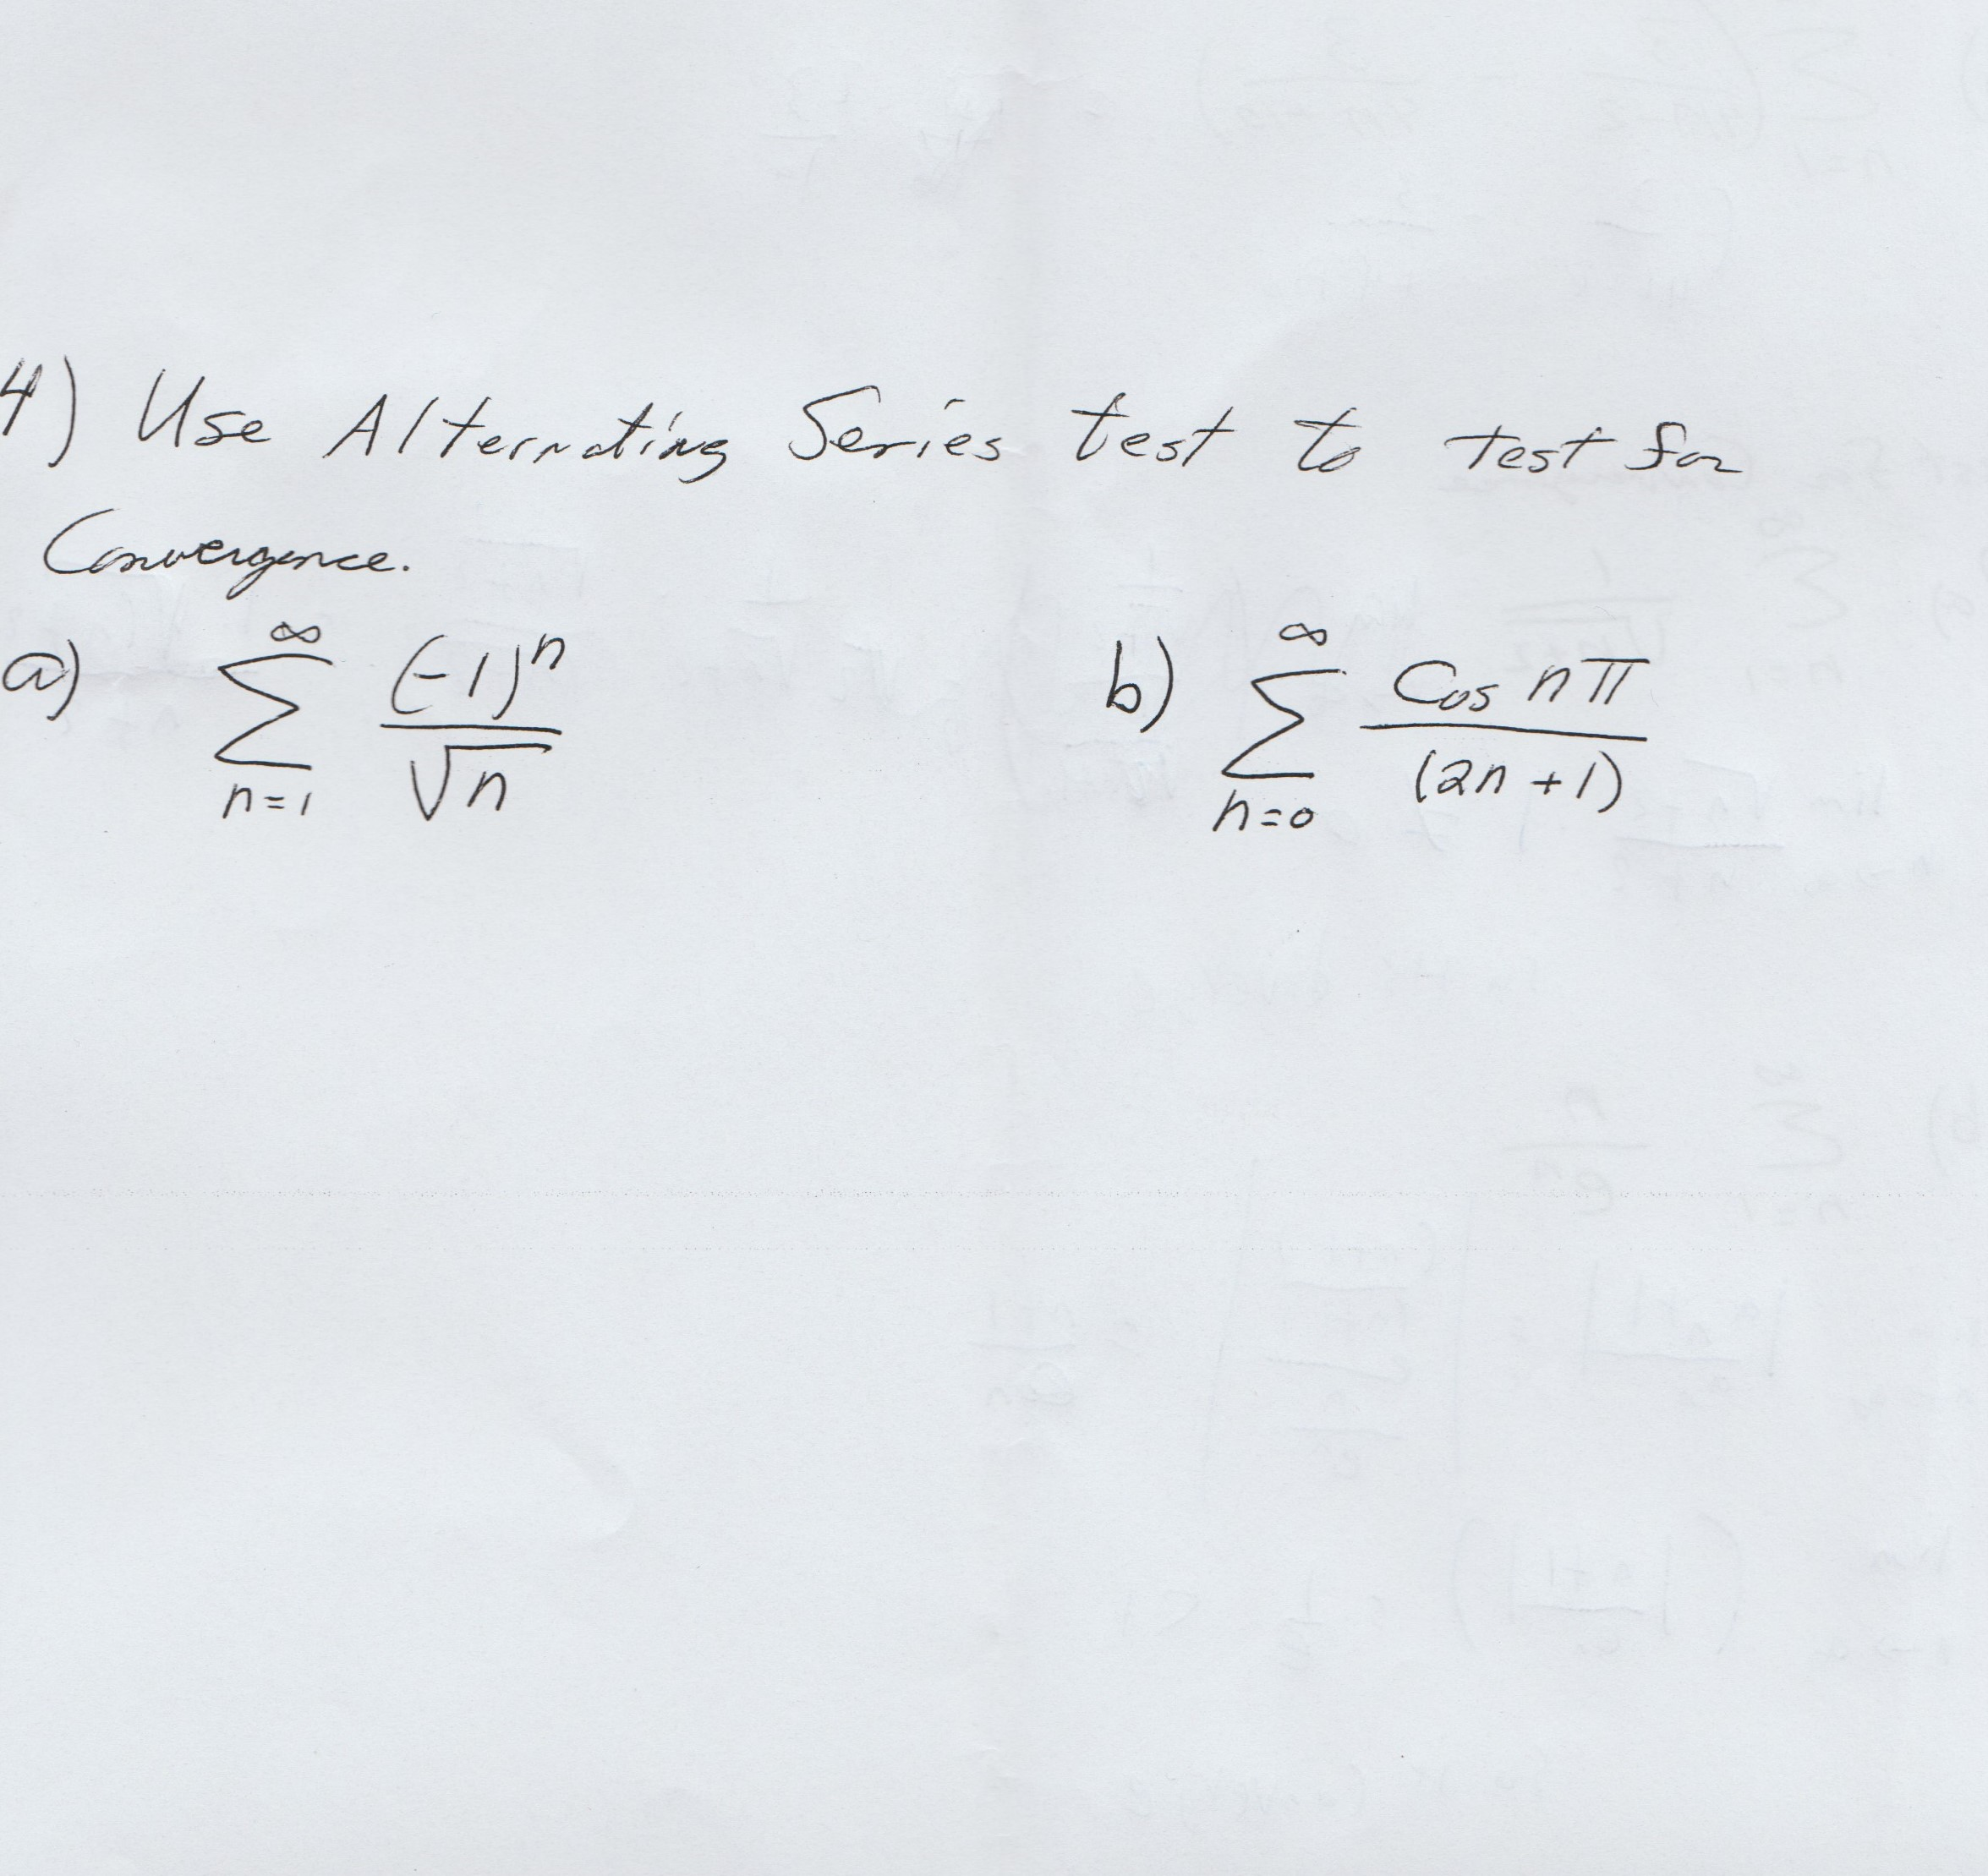 4) Use Alternating Series test to test for
Convergence.
a) ∞ ∑ n=1 (-1)^n / √n
b) ∞ ∑ n=0 Cos nπ / (2n + 1)